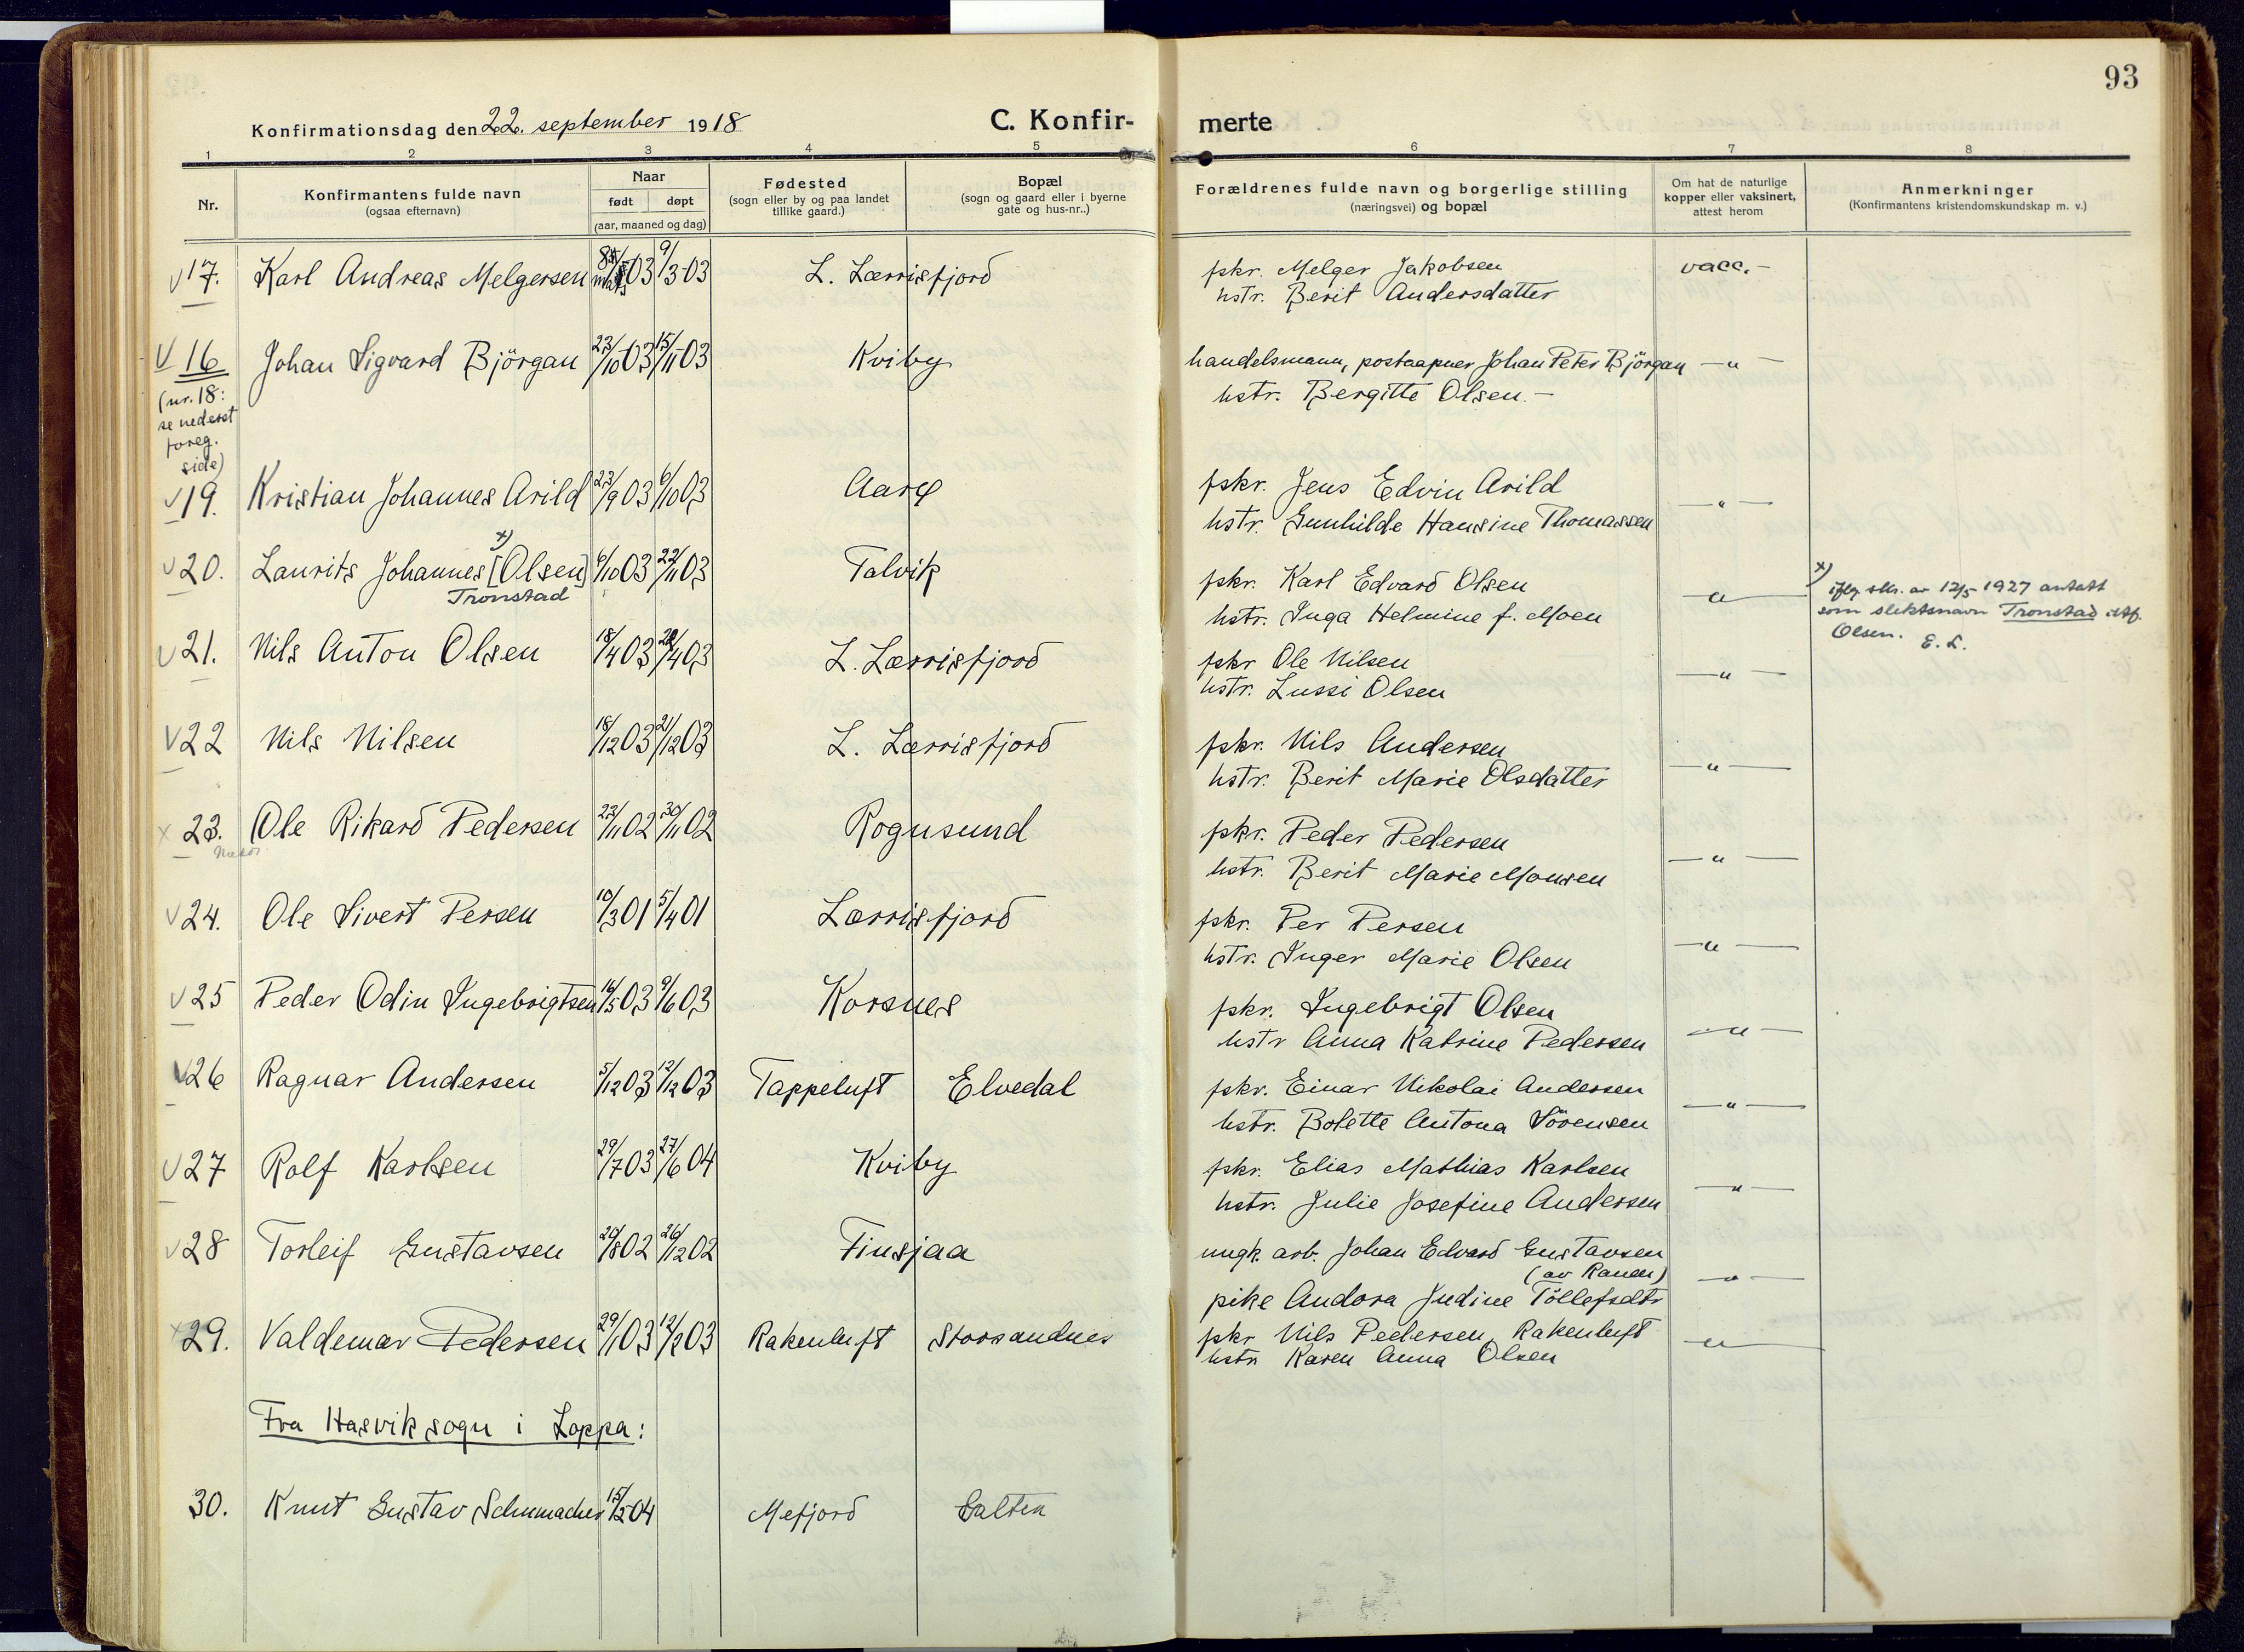 93
Konfirmationsdag den 22. september 1918
C. Konfirmerte
1 2 3 4 5 6 7 8
Nr.
Konfirmantens fulde navn
(ogsaa efternavn)
Naar
født døpt
(aar, maaned og dag)
Fødested
(sogn eller by og paa landet
tillike gaard.)
Bopæl
(sogn og gaard eller i byerne
gate og hus-nr..)
Forældrenes fulde navn og borgerlige stilling
(næringsvei) og bopæl
Om hat de naturlige
kopper eller vaksinert,
attest herom
Anmerkninger
(Konfirmantens kristendomskundskap m. v.)
v 17. Karl Andreas Melgersen 03 9/3-03 L. Lærrisfjord fskr. Melger Jakobsen vacc. –
hstr. Berit Andersdatter
v 16 Johan Sigvard Björgan 23/10-03 15/11-03 Kviby handelsmann, postaapner Johan Peter Björgan — " —
hstr. Bergitte Olsen. –
(nr. 18:
se nederst
foreg.
side)
v 19. Kristian Johannes Arild 23/9 03 6/10 03 Aarø fskr. Jens Edvin Arild — " —
hstr. Gunhilde Hansine Thomassen
v 20. Laurits Johannes [Olsen] x) 6/10 03 22/11 03 Talvik fskr. Karl Edvard Olsen — " —
Tronstad
hstr. Inga Helmine f. Moen
x) iflg. skr. av 12/5 1927 antatt
som slektsnavn Tronstad istf.
Olsen. E. L.
v 21. Nils Anton Olsen 18/4 03 /4 03 L. Lærrisfjord fskr Ole Nilsen — " —
hstr. Lussi Olsen
v 22 Nils Nilsen 18/12 03 21/12 03 L. Lærrisfjord fskr. Nils Andersen — " —
hstr. Berit Marie Olsdatter
x 23. Ole Rikard Pedersen 23/11 02 30/11 02 Rognsund fskr. Peder Pedersen — " —
hstr. Berit Marie Monsen
v 24. Ole Sivert Persen 10/3 01 5/4 01 Lærrisfjord fskr. Per Persen — " —
hstr. Inger Marie Olsen
v 25 Peder Odin Ingebrigtsen 16/5 03 9/6 03 Korsnes fskr. Ingebrigt Olsen — " —
hstr Anna Katrine Pedersen
v 26 Ragnar Andersen 5/12 03 12/12 03 Tappeluft Elvedal fskr. Einar Nikolai Andersen — " —
hstr. Bolette Antona Sörensen
v 27 Rolf Karlsen 29/7 03 27/6 04 Kviby fskr. Elias Mathias Karlsen — " —
hstr. Julie Josefine Andersen
v 28 Torleif Gustavsen /8 02 26/12 02 Finsjaa ungk. arb. Johan Edvard Gustavsen — " —
(av Ranen)
pike Andora Judine Töllefsdtr
x 29. Valdemar Pedersen 29/1 03 12/2 03 Rakenluft Storsandnes fskr Nils Pedersen, Rakenluft — " —
hstr Karen Anna Olsen
Fra Hasvik sogn i Loppa:
30. Knut Gustav Schumacher 15/2 04 Mefjord Galten